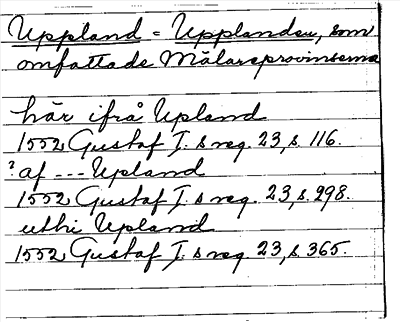 Uppland = Upplanden, som
omfattade Mälareprovinserna
här ifrå Upland
1552 Gustaf I:s reg. 23, s. 116.
? af --- Upland
1552 Gustaf I:s reg. 23, s. 298.
uthi Upland
1552 Gustaf I:s reg. 23, s. 365.